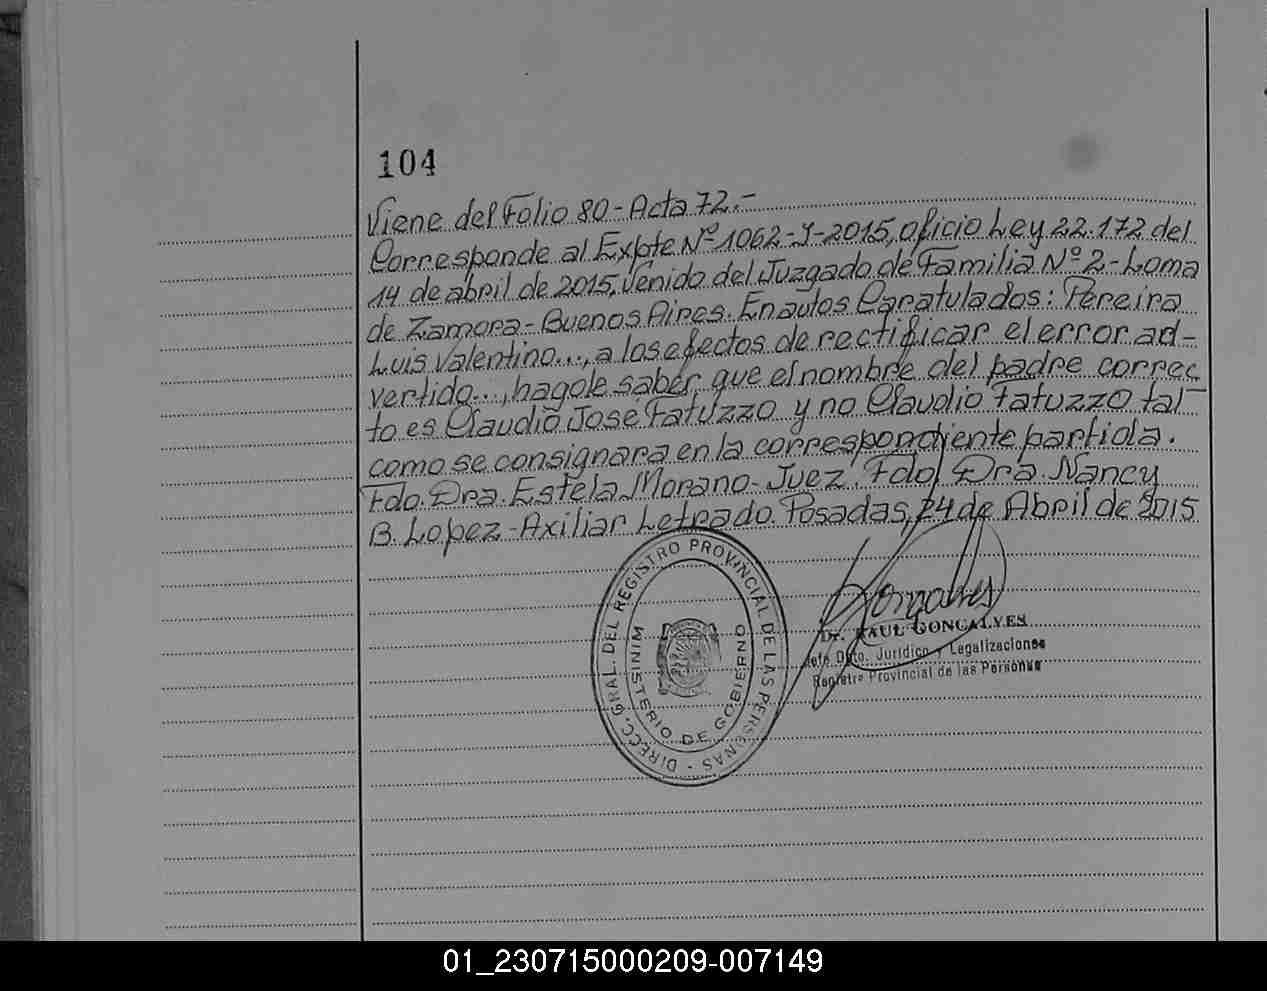 104
Viene del Folio 80 - Acta 72.-
Corresponde al Expte Nº 1062-J-2015, oficio Ley 22.172 del
14 de abril de 2015, venido del Juzgado de Familia Nº 2 - Loma
de Zamora - Buenos Aires. En autos Caratulados: Pereira
Luis Valentino..., a los efectos de rectificar el error ad-
vertido..., hagole saber que el nombre del padre correc
to es Claudio Jose Fatuzzo y no Claudio Fatuzzo tal
como se consignara en la correspondiente partida.
Fdo. Dra. Estela Morano - Juez. Fdo. Dra. Nancy
B. Lopez - Axiliar Letrado. Posadas, 24 de Abril de 2015
DIRECC. GRAL. DEL REGISTRO PROVINCIAL DE LAS PERSONAS -
MINISTERIO DE GOBIERNO
Dr. RAUL GONCALVES
Jefe Dpto. Jurídico y Legalizaciones
Registro Provincial de las Personas
01_230715000209-007149